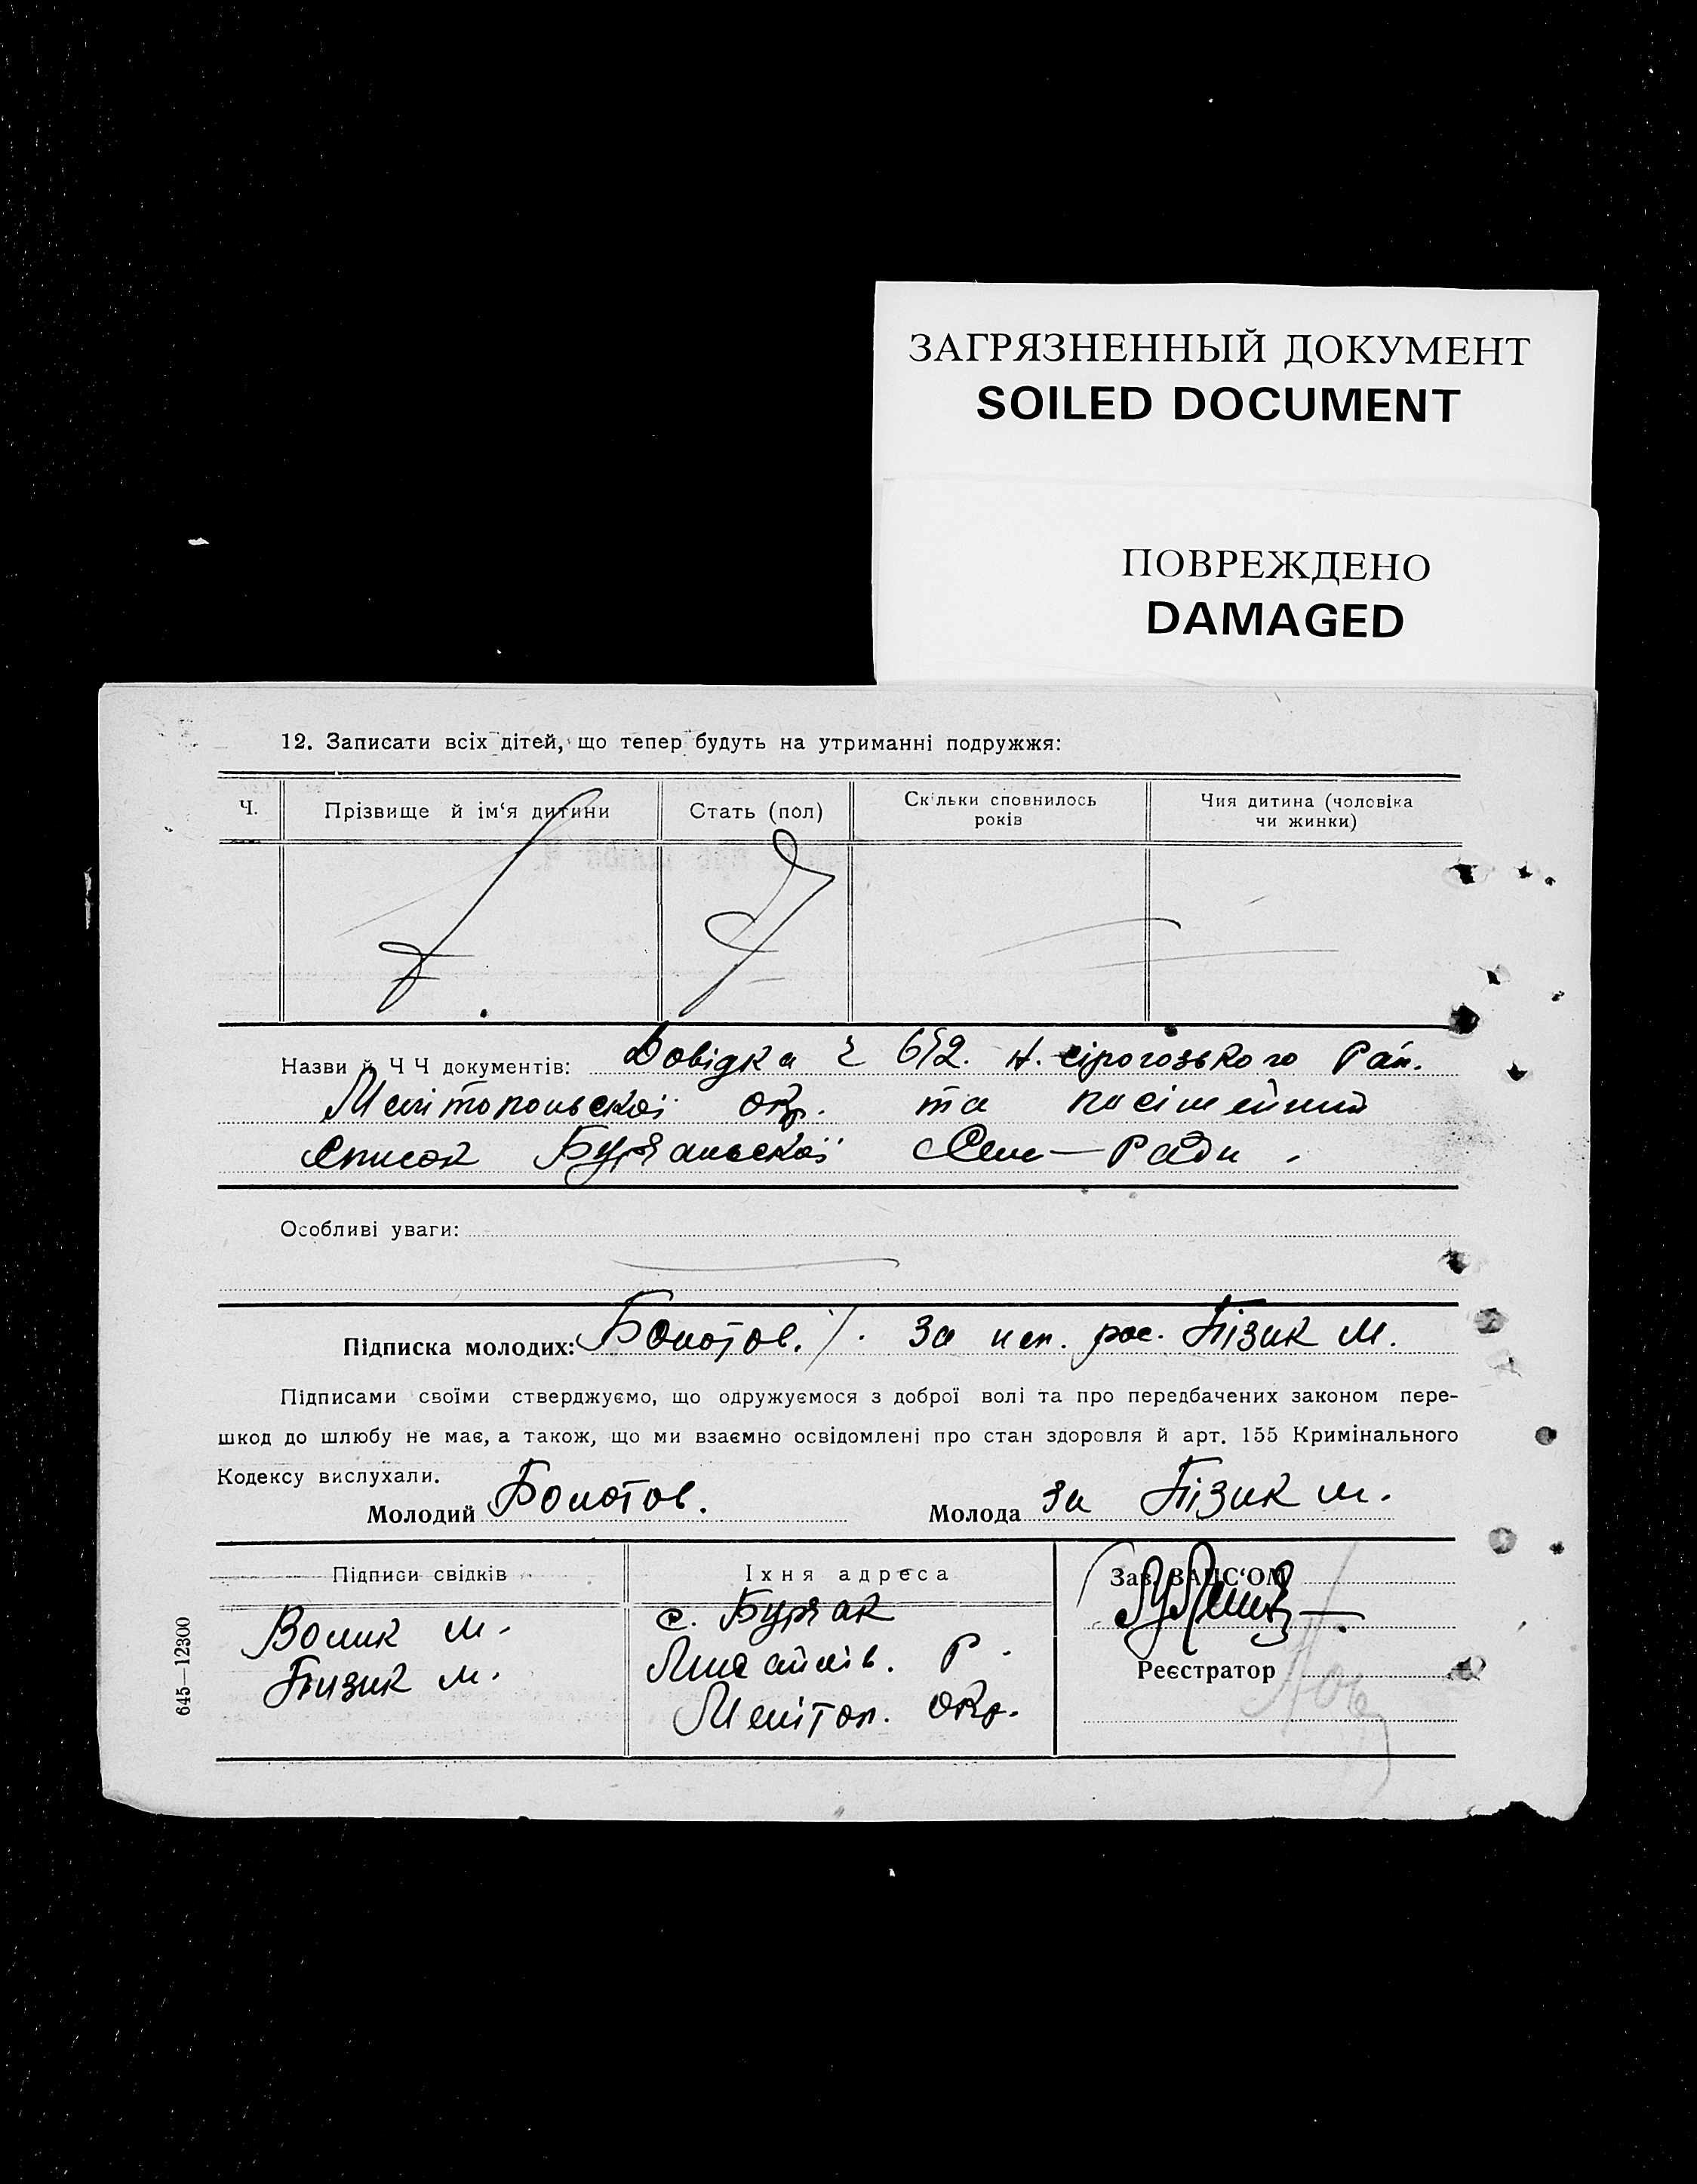 ЗАГРЯЗНЕННЫЙ ДОКУМЕНТ
SOILED DOCUMENT
ПОВРЕЖДЕНО
DAMAGED
12. Записати всіх дітей, що тепер будуть на утриманні подружжя:
Ч. Прізвище й ім‘я дитини Стать (пол) Скільки сповнилось років Чия дитина (чоловіка чи жинки)
Назви й Ч Ч документів: Довідка Ч 652. Н. сірогозького Рай.
Мелітопольскої окр. та посімейний
список Сель-Ради
Особливі уваги:
Підписка молодих: Болотов. За неп. рос. Пізик М.
Підписами своїми стверджуємо, що одружуємося з доброї волі та про передбачених законом пере-
шкод до шлюбу не має, а також, що ми взаємно освідомлені про стан здоровля й арт. 155 Кримінального
Кодексу вислухали.
Молодий Болотов. Молода За Пізик М.
Підписи свідків Їхня адреса Зав. ЗАПС‘ОМ
Волик М. с.
Пизик М. Р.
Меліտոп. окр.
Реєстратор
645—12300